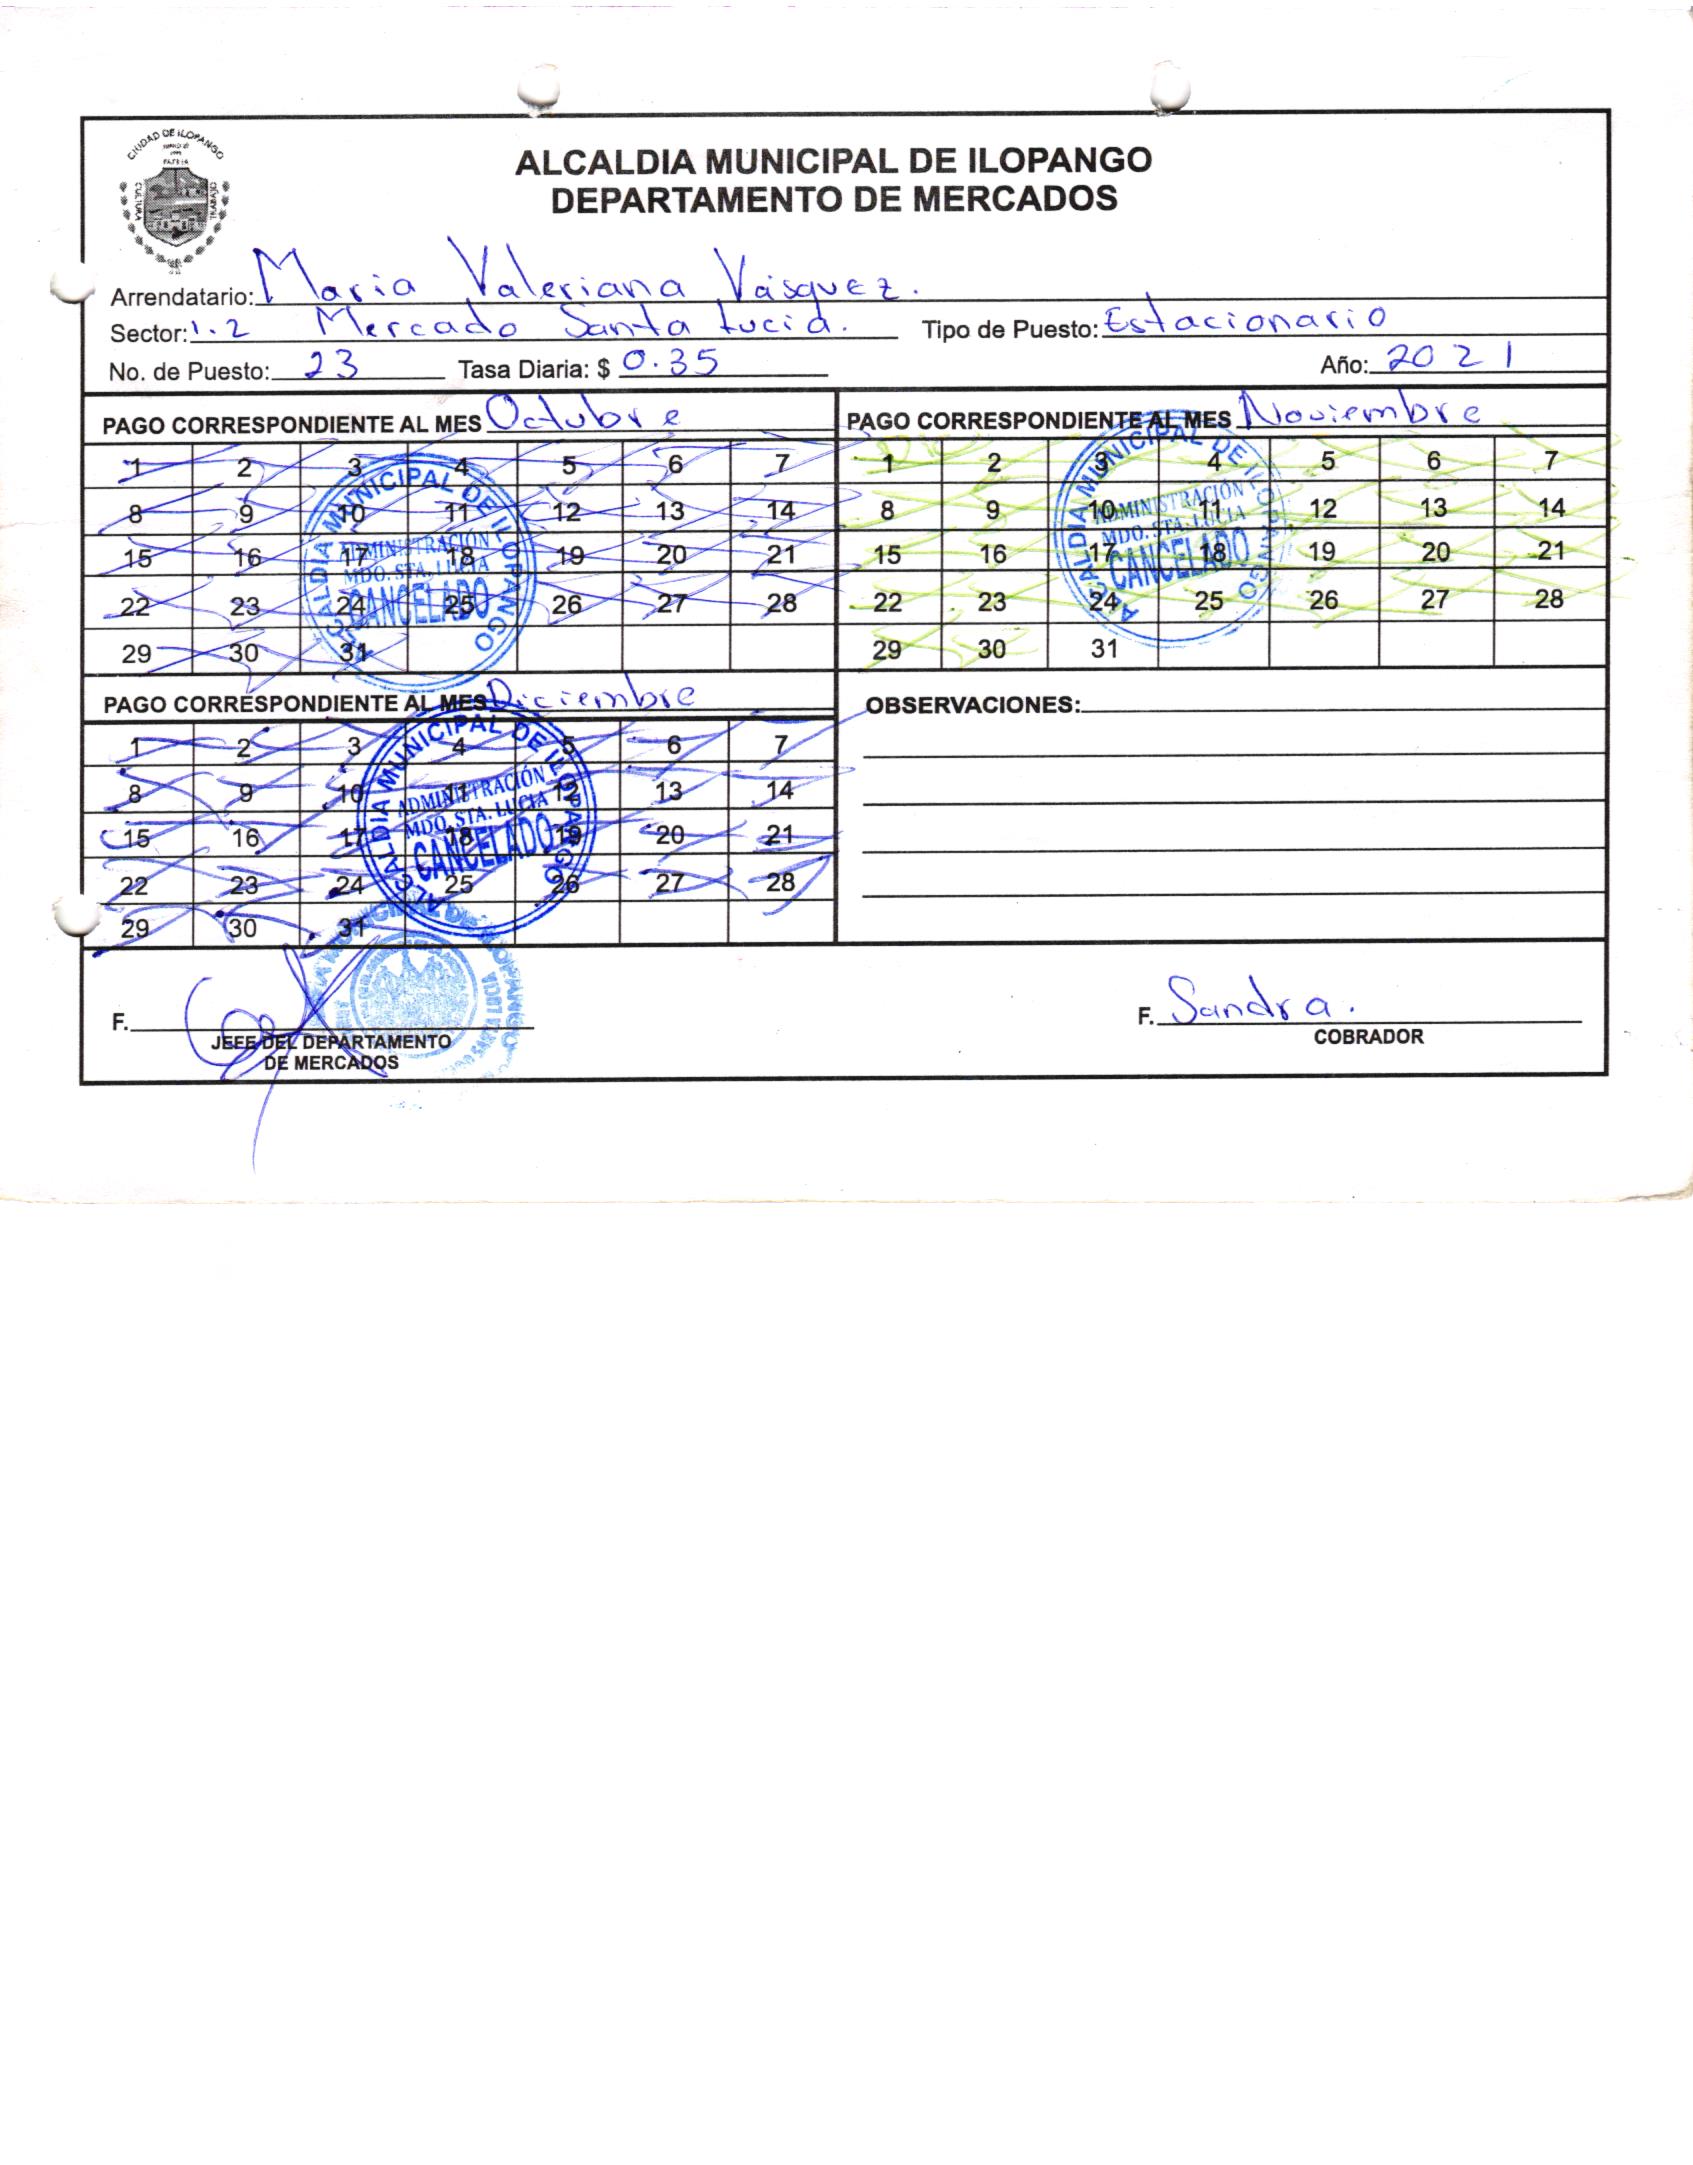 CIUDAD DE ILOPANGO
PATRIA
CULTURA
TRABAJO
ALCALDIA MUNICIPAL DE ILOPANGO
DEPARTAMENTO DE MERCADOS
Arrendatario: Maria Valeriana Vásquez.
Sector: 1.2 Mercado Santa Lucia. Tipo de Puesto: Estacionario
No. de Puesto: 23 Tasa Diaria: $ 0.35 Año: 2021
PAGO CORRESPONDIENTE AL MES Octubre
1 2 3 4 5 6 7
8 9 10 11 12 13 14
15 16 17 18 19 20 21
22 23 24 25 26 27 28
29 30 31
ALCALDIA MUNICIPAL DE ILOPANGO
ADMINISTRACIÓN
MDO. STA. LUCIA
CANCELADO
PAGO CORRESPONDIENTE AL MES Noviembre
1 2 3 4 5 6 7
8 9 10 11 12 13 14
15 16 17 18 19 20 21
22 23 24 25 26 27 28
29 30 31
ALCALDIA MUNICIPAL DE ILOPANGO
ADMINISTRACIÓN
MDO. STA. LUCIA
CANCELADO
PAGO CORRESPONDIENTE AL MES Diciembre
1 2 3 4 5 6 7
8 9 10 11 12 13 14
15 16 17 18 19 20 21
22 23 24 25 26 27 28
29 30 31
ALCALDIA MUNICIPAL DE ILOPANGO
ADMINISTRACIÓN
MDO. STA. LUCIA
CANCELADO
OBSERVACIONES:
F.
JEFE DEL DEPARTAMENTO
DE MERCADOS
F. Sandra.
COBRADOR